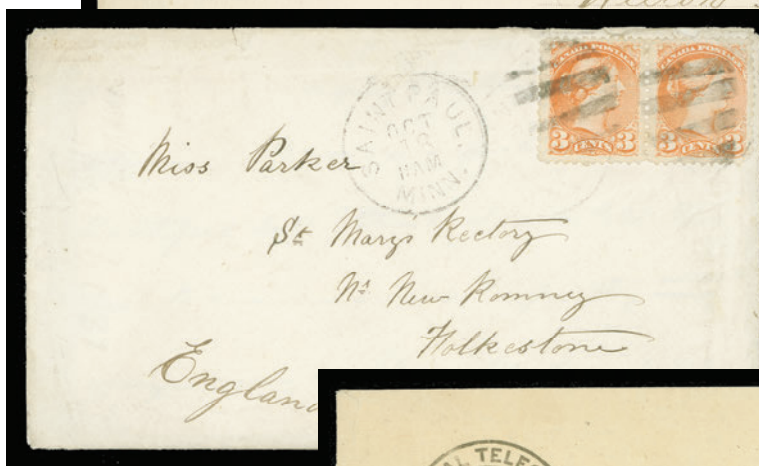 CANADA POSTAGE CANADA POSTAGE
3 CENTS 3 3 CENTS 3
SAINT PAUL.
OCT
11AM
MINN.
Miss Parker
St Marys Rectory
Nr New Romney
Folkestone
England
AL TELE